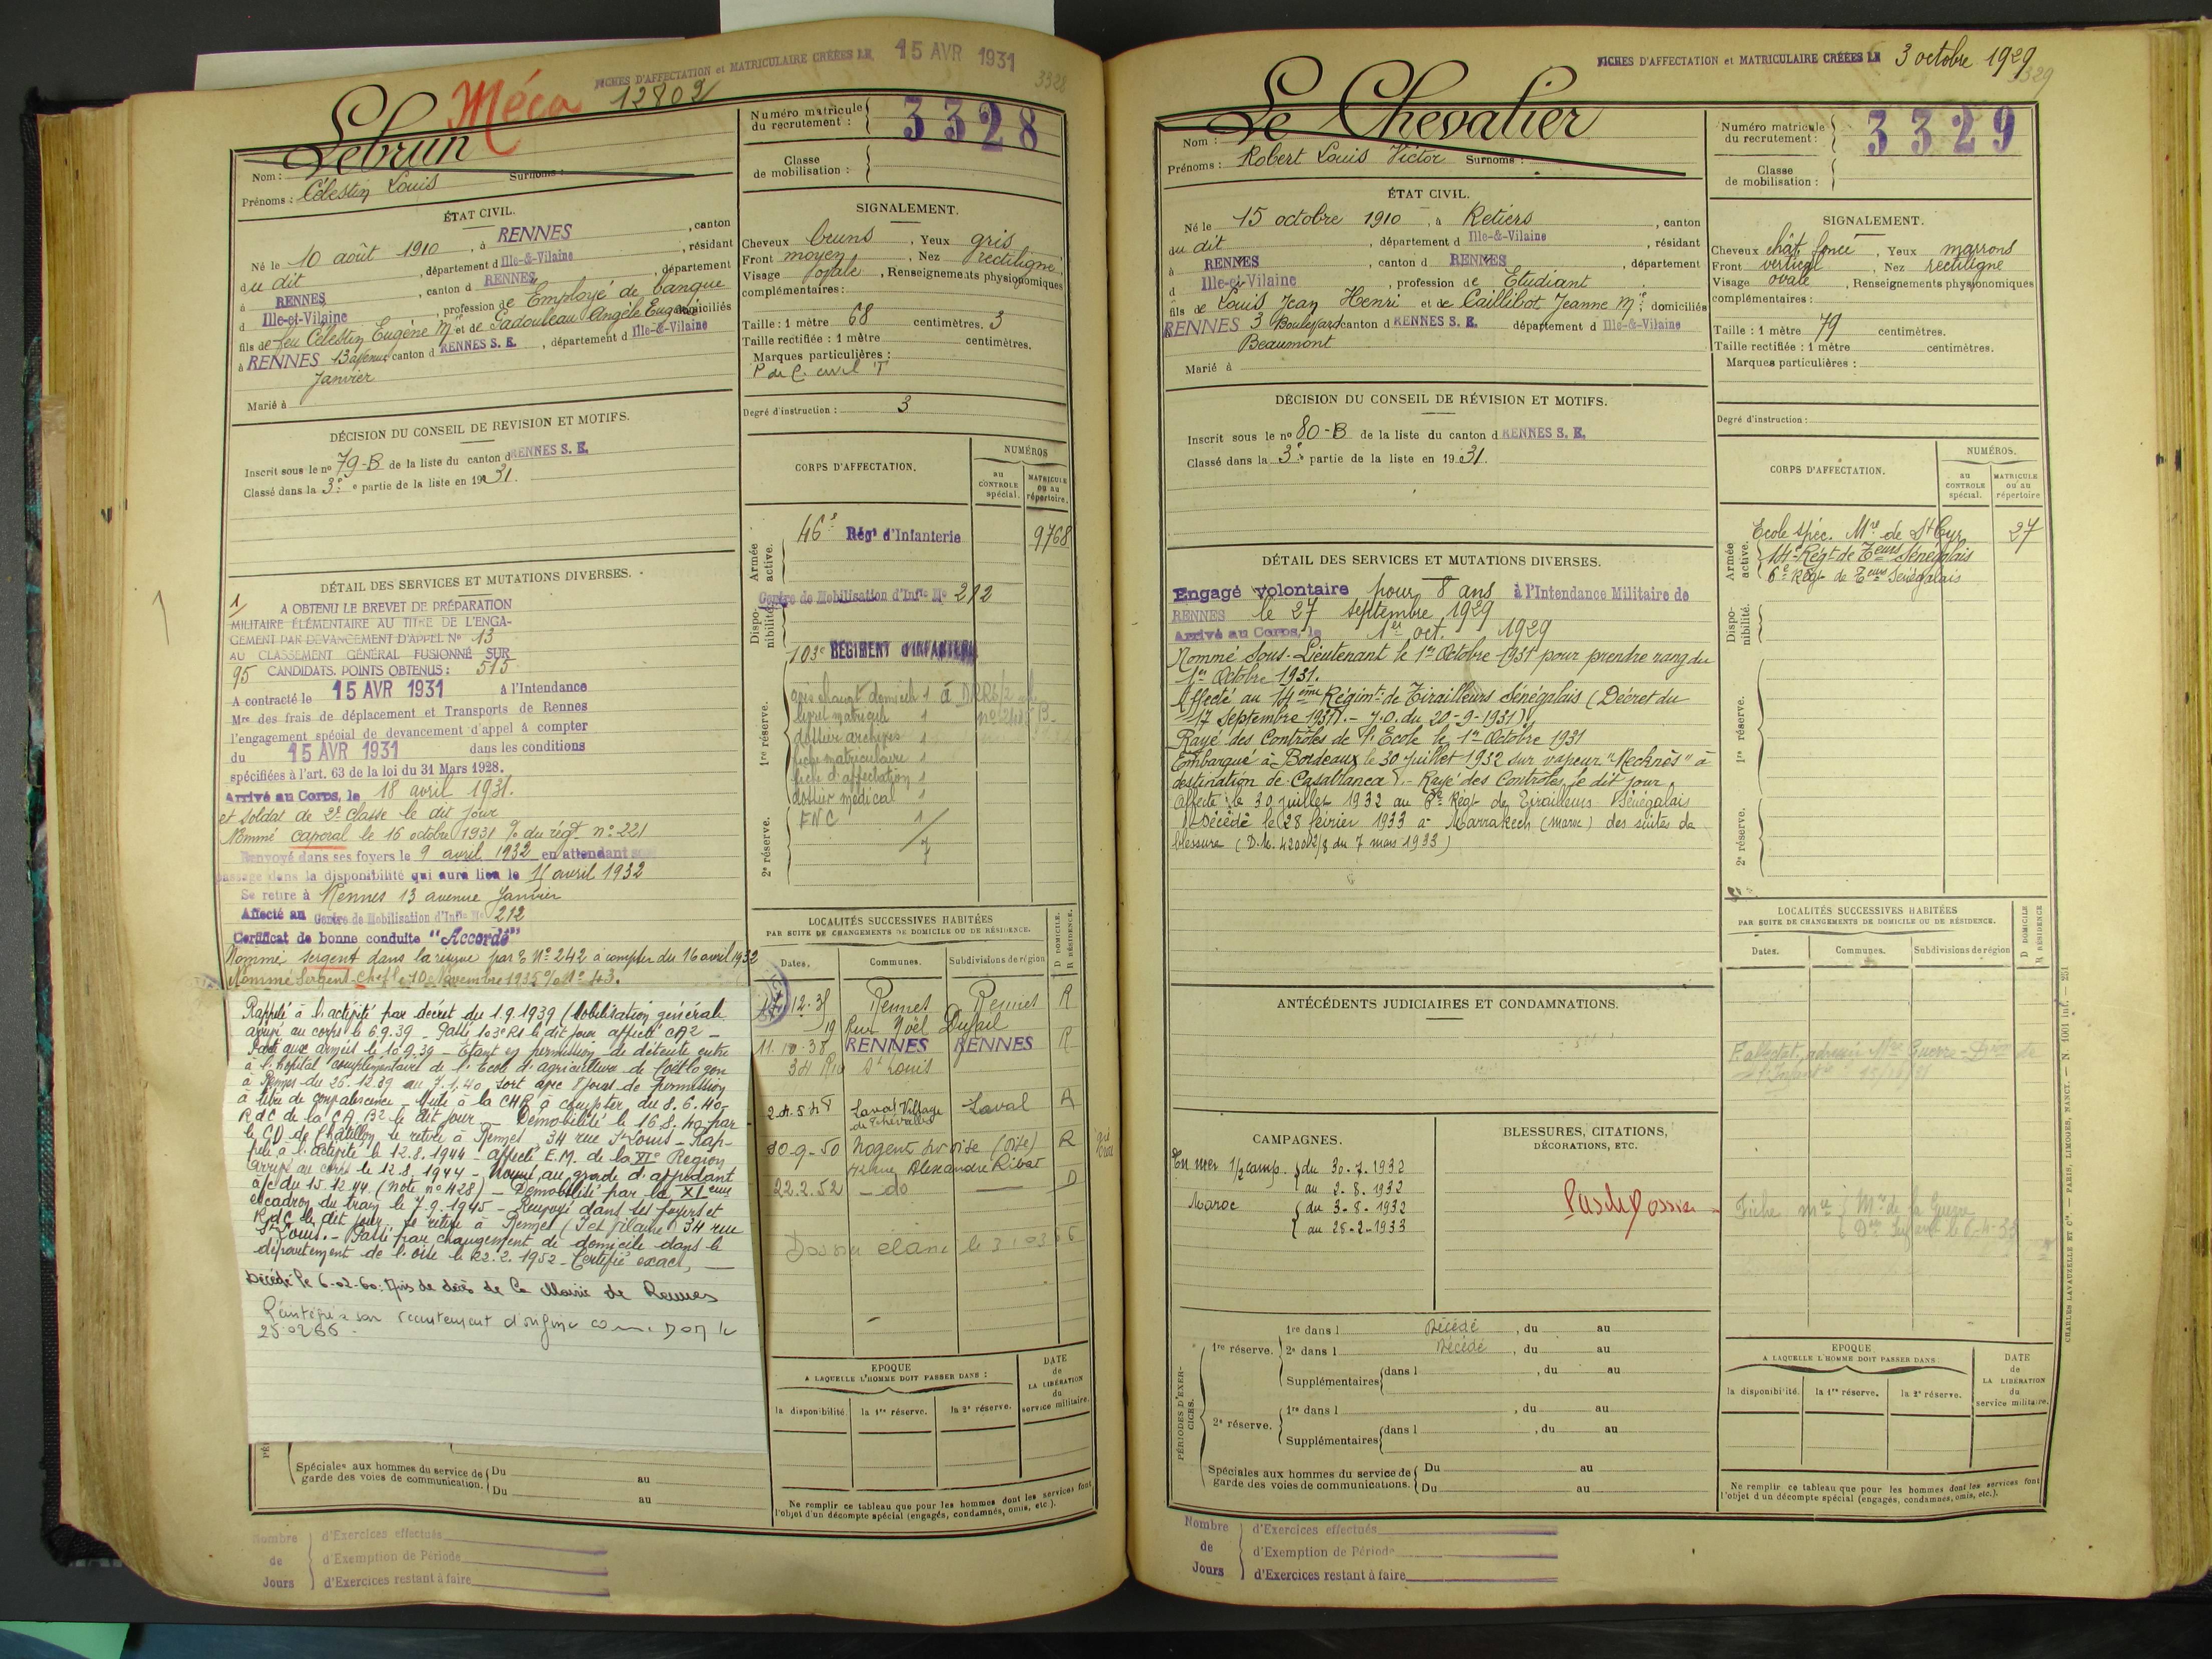 FICHES D'AFFECTATION et MATRICULAIRE CRÉÉES LE 15 AVR 1931
3328
Méca 12802
Nom : Lebrun
Prénoms : Célestin Louis Surnoms :
Numéro matricule du recrutement : 3328
Classe de mobilisation :
ÉTAT CIVIL.
Né le 10 août 1910, à RENNES, canton
du dit, département d Ille-&-Vilaine, résidant
à RENNES, canton d RENNES, département
d Ille-et-Vilaine, profession de Employé de banque
fils de feu Célestin Eugène Mie et de Gadouleau Angèle Eugénie domiciliés
à RENNES 13 avenue canton d RENNES S. E., département d Ille-&-Vilaine
Janvier
Marié à
SIGNALEMENT.
Cheveux bruns, Yeux gris
Front moyen, Nez rectiligne
Visage ovale, Renseignements physionomiques
complémentaires :
Taille : 1 mètre 68 centimètres. 3
Taille rectifiée : 1 mètre centimètres.
Marques particulières :
P de C. civil T
Degré d'instruction : 3
DÉCISION DU CONSEIL DE REVISION ET MOTIFS.
Inscrit sous le no 79-B de la liste du canton d RENNES S. E.
Classé dans la 3e partie de la liste en 1931.
DÉTAIL DES SERVICES ET MUTATIONS DIVERSES.
1/ A OBTENU LE BREVET DE PRÉPARATION
MILITAIRE ÉLÉMENTAIRE AU TITRE DE L'ENGA-
GEMENT PAR DEVANCEMENT D'APPEL No 13
AU CLASSEMENT GÉNÉRAL FUSIONNÉ SUR
95 CANDIDATS. POINTS OBTENUS : 515
A contracté le 15 AVR 1931 à l'Intendance
Mre des frais de déplacement et Transports de Rennes
l'engagement spécial de devancement d'appel à compter
du 15 AVR 1931 dans les conditions
spécifiées à l'art. 63 de la loi du 31 Mars 1928.
Arrivé au Corps, le 18 avril 1931.
et soldat de 2e classe le dit jour
Nommé caporal le 16 octobre 1931 % du régt no 221
Renvoyé dans ses foyers le 9 avril 1932 en attendant son
passage dans la disponibilité qui aura lieu le 15 avril 1932
Se retire à Rennes 13 avenue Janvier
Affecté au Centre de Mobilisation d'Infie No 212
Certificat de bonne conduite "Accordé"
Nommé sergent dans la réserve par No 242 à compter du 16 avril 1932
Nommé Sergent-Chef le 10 Novembre 1935 % No 43.
Rappelé à l'activité par décret du 1.9.1939 (Mobilisation générale
arrivé au corps le 6.9.39 - Passé 103e RI le dit jour affecté CA2 -
Parti aux armées le 10.9.39 - Etant en permission de détente entre
à l'hôpital complémentaire de l'Ecole d'agriculture de Coëtlogon
à Rennes du 26.12.39 au 7.1.40 sort avec 8 jours de permission
à titre de convalescence - Muté à la CHR à compter du 8.6.40-
RdC de la CA B2 le dit jour - Démobilisé le 16.8.40 par
le CD de Châtillon se retire à Rennes, 34 rue St Louis - Rap-
pelé à l'activité le 12.8.1944 - affecté E.M. de la XIe Région
Arrivé au corps le 12.8.1944 - Nommé au grade d'adjudant
a/c du 15.12.44 (note no 428) - Démobilisé par le XIeme
escadron du train le 7.9.1945 - Renvoyé dans ses foyers et
RdC le dit jour se retire à Rennes (I et Vilaine) 34 rue
St Louis. - Passé par changement de domicile dans le
département de l'Oise le 22.2.1952 - Certifié exact,
Décédé le 6-02-60. Avis de décès de la Mairie de Rennes
Réintégré à son recrutement d'origine
CORPS D'AFFECTATION.
NUMÉROS
au CONTROLE spécial.
MATRICULE ou au répertoire.
Armée active.
46e Régt d'Infanterie 9768
Dispo-nibilité.
Centre de Mobilisation d'Infie No 212
103e RÉGIMENT D'INFANTERIE
1re réserve.
livret matricule 1
dossier archives 1
fiche matriculaire 1
fiche d'affectation 1
dossier médical 1
2e réserve.
FNC 1
7
LOCALITÉS SUCCESSIVES HABITÉES
PAR SUITE DE CHANGEMENTS DE DOMICILE OU DE RÉSIDENCE.
Dates. Communes. Subdivisions de région
D DOMICILE. R RÉSIDENCE.
12.35 Rennes Rennes R
19 Rue Noël Dufail
11.10.38 RENNES RENNES R
34 Rue St Louis
2.4.548 Laval Village Laval R
30-9-50 Nogent sur oise (Oise) R
rue Alexandre Ribot
22.2.52 - do - D
EPOQUE
A LAQUELLE L'HOMME DOIT PASSER DANS :
la disponibilité. la 1re réserve. la 2e réserve.
DATE de LA LIBÉRATION du service militaire.
Spéciales aux hommes du service de garde des voies de communication. Du au
Du au
Ne remplir ce tableau que pour les hommes dont les services font
l'objet d'un décompte spécial (engagés, condamnés, omis, etc.).
Nombre de Jours
d'Exercices effectués
d'Exemption de Période
d'Exercices restant à faire
FICHES D'AFFECTATION et MATRICULAIRE CRÉÉES LE 3 octobre 1929
3329
Nom : Le Chevalier
Prénoms : Robert Louis Victor Surnoms :
Numéro matricule du recrutement : 3329
Classe de mobilisation :
ÉTAT CIVIL.
Né le 15 octobre 1910, à Retiers, canton
du dit, département d Ille-&-Vilaine, résidant
à RENNES, canton d RENNES, département
d Ille-et-Vilaine, profession de Etudiant
fils de Louis Jean Henri et de Caillibot Jeanne Mie domiciliés
RENNES 3 Boulevard canton d RENNES S. E. département d Ille-&-Vilaine
Beaumont
Marié à
SIGNALEMENT.
Cheveux chât foncé, Yeux marrons
Front vertical, Nez rectiligne
Visage ovale, Renseignements physionomiques
complémentaires :
Taille : 1 mètre 79 centimètres.
Taille rectifiée : 1 mètre centimètres.
Marques particulières :
Degré d'instruction :
DÉCISION DU CONSEIL DE RÉVISION ET MOTIFS.
Inscrit sous le no 80-B de la liste du canton d RENNES S. E.
Classé dans la 3e partie de la liste en 1931.
DÉTAIL DES SERVICES ET MUTATIONS DIVERSES.
Engagé volontaire pour 8 ans à l'Intendance Militaire de
RENNES le 27 septembre 1929
Arrivé au Corps, le 1er oct. 1929
Nommé Sous-Lieutenant le 1er Octobre 1931 pour prendre rang du
1er Octobre 1931.
Affecté au 14ème Régimt de Tirailleurs Sénégalais (Décret du
17 Septembre 1931. - J.O. du 20-9-1931).
Rayé des Contrôles de l'Ecole le 1er Octobre 1931
Embarqué à Bordeaux le 30 juillet 1932 sur vapeur "Mecknès" à
destination de Casablanca. - Rayé des Contrôles le dit jour.
Affecté le 30 juillet 1932 au 6e Régt de Tirailleurs Sénégalais
Décédé le 28 février 1933 à Marrakech (Maroc) des suites de
blessure (D.M. 42002/8 du 7 mars 1933)
CORPS D'AFFECTATION.
NUMÉROS.
au CONTROLE spécial.
MATRICULE ou au répertoire
Armée active.
Ecole Spéc. Mre de St Cyr 27
14e Régt de Teurs Sénégalais
6e Régt de Teurs Sénégalais
Dispo-nibilité.
1re réserve.
2e réserve.
ANTÉCÉDENTS JUDICIAIRES ET CONDAMNATIONS.
LOCALITÉS SUCCESSIVES HABITÉES
PAR SUITE DE CHANGEMENTS DE DOMICILE OU DE RÉSIDENCE.
Dates. Communes. Subdivisions de région
D DOMICILE R RÉSIDENCE
CAMPAGNES.
En mer 1/2 camp. du 30.7.1932
au 2.8.1932
Maroc du 3-8-1932
au 28-2-1933
BLESSURES, CITATIONS,
DÉCORATIONS, ETC.
Pas de dossier
PÉRIODES D'EXER-CICES.
1re réserve. 1re dans l Décédé, du au
2e dans l Décédé, du au
Supplémentaires dans l, du au
2e réserve. 1re dans l, du au
Supplémentaires dans l, du au
Spéciales aux hommes du service de garde des voies de communications. Du au
Du au
EPOQUE
A LAQUELLE L'HOMME DOIT PASSER DANS
la disponibilité. la 1re réserve. la 2e réserve.
DATE de LA LIBÉRATION du service militaire.
Ne remplir ce tableau que pour les hommes dont les services font
l'objet d'un décompte spécial (engagés, condamnés, omis, etc.).
CHARLES LAVAUZELLE ET Cie. — PARIS, LIMOGES, NANCY. — N. 1001 int. — 251
Nombre de Jours
d'Exercices effectués
d'Exemption de Période
d'Exercices restant à faire